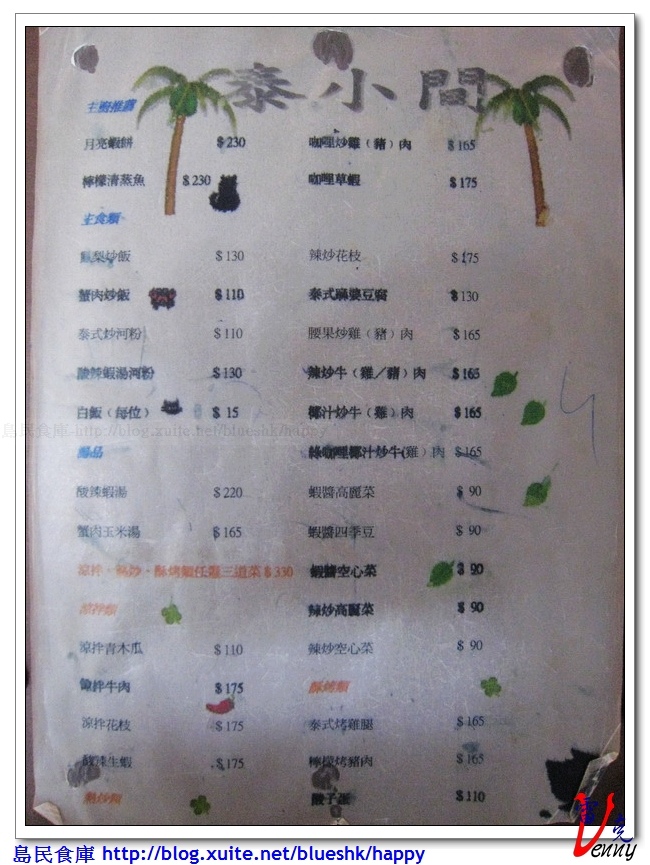 泰小間
主廚推薦
月亮蝦餅 $230
檸檬清蒸魚 $230
主食類
鳳梨炒飯 $130
蟹肉炒飯 $110
泰式炒河粉 $110
酸辣蝦湯河粉 $130
白飯（每位） $ 15
湯品
酸辣蝦湯 $220
蟹肉玉米湯 $165
涼拌·熱炒·酥烤類任選三道菜 $330
涼拌類
涼拌青木瓜 $110
涼拌牛肉 $175
涼拌花枝 $175
酸辣生蝦 $175
熱炒類
咖哩炒雞（豬）肉 $165
咖哩草蝦 $175
辣炒花枝 $175
泰式麻婆豆腐 $130
腰果炒雞（豬）肉 $165
辣炒牛（雞／豬）肉 $165
椰汁炒牛（雞）肉 $165
綠咖哩椰汁炒牛(雞）肉 $165
蝦醬高麗菜 $ 90
蝦醬四季豆 $ 90
蝦醬空心菜 $ 90
辣炒高麗菜 $ 90
辣炒空心菜 $ 90
酥烤類
泰式烤雞腿 $165
檸檬烤豬肉 $165
$110
島民食庫-http://blog.xuite.net/blueshk/happy
Venny
島民食庫 http://blog.xuite.net/blueshk/happy